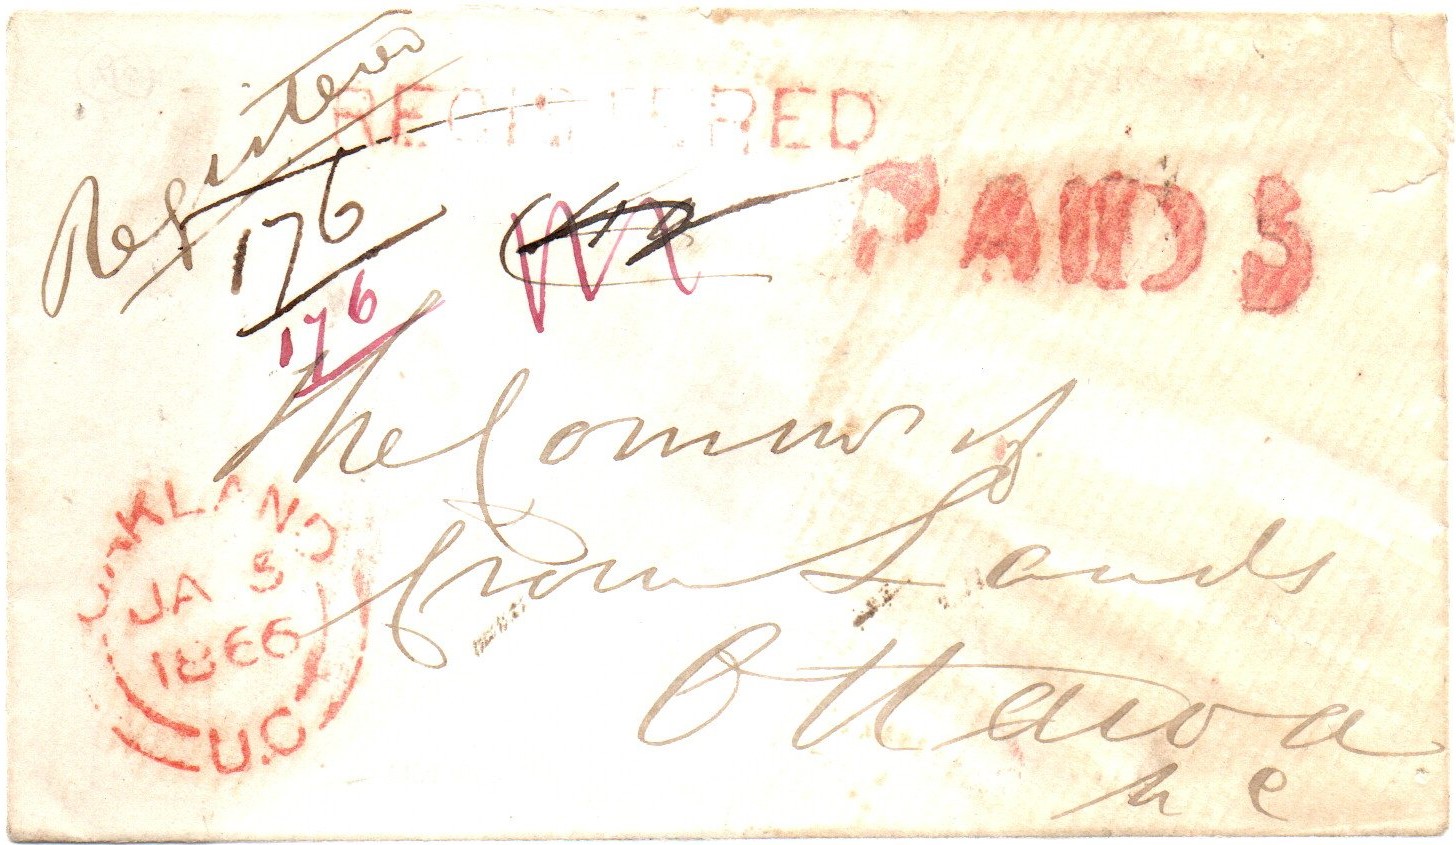 Registered
REGISTERED
PAID 5
176
176
The Commr of
Crown Lands
Ottawa
OAKLAND
JA 5
1866
U.C.